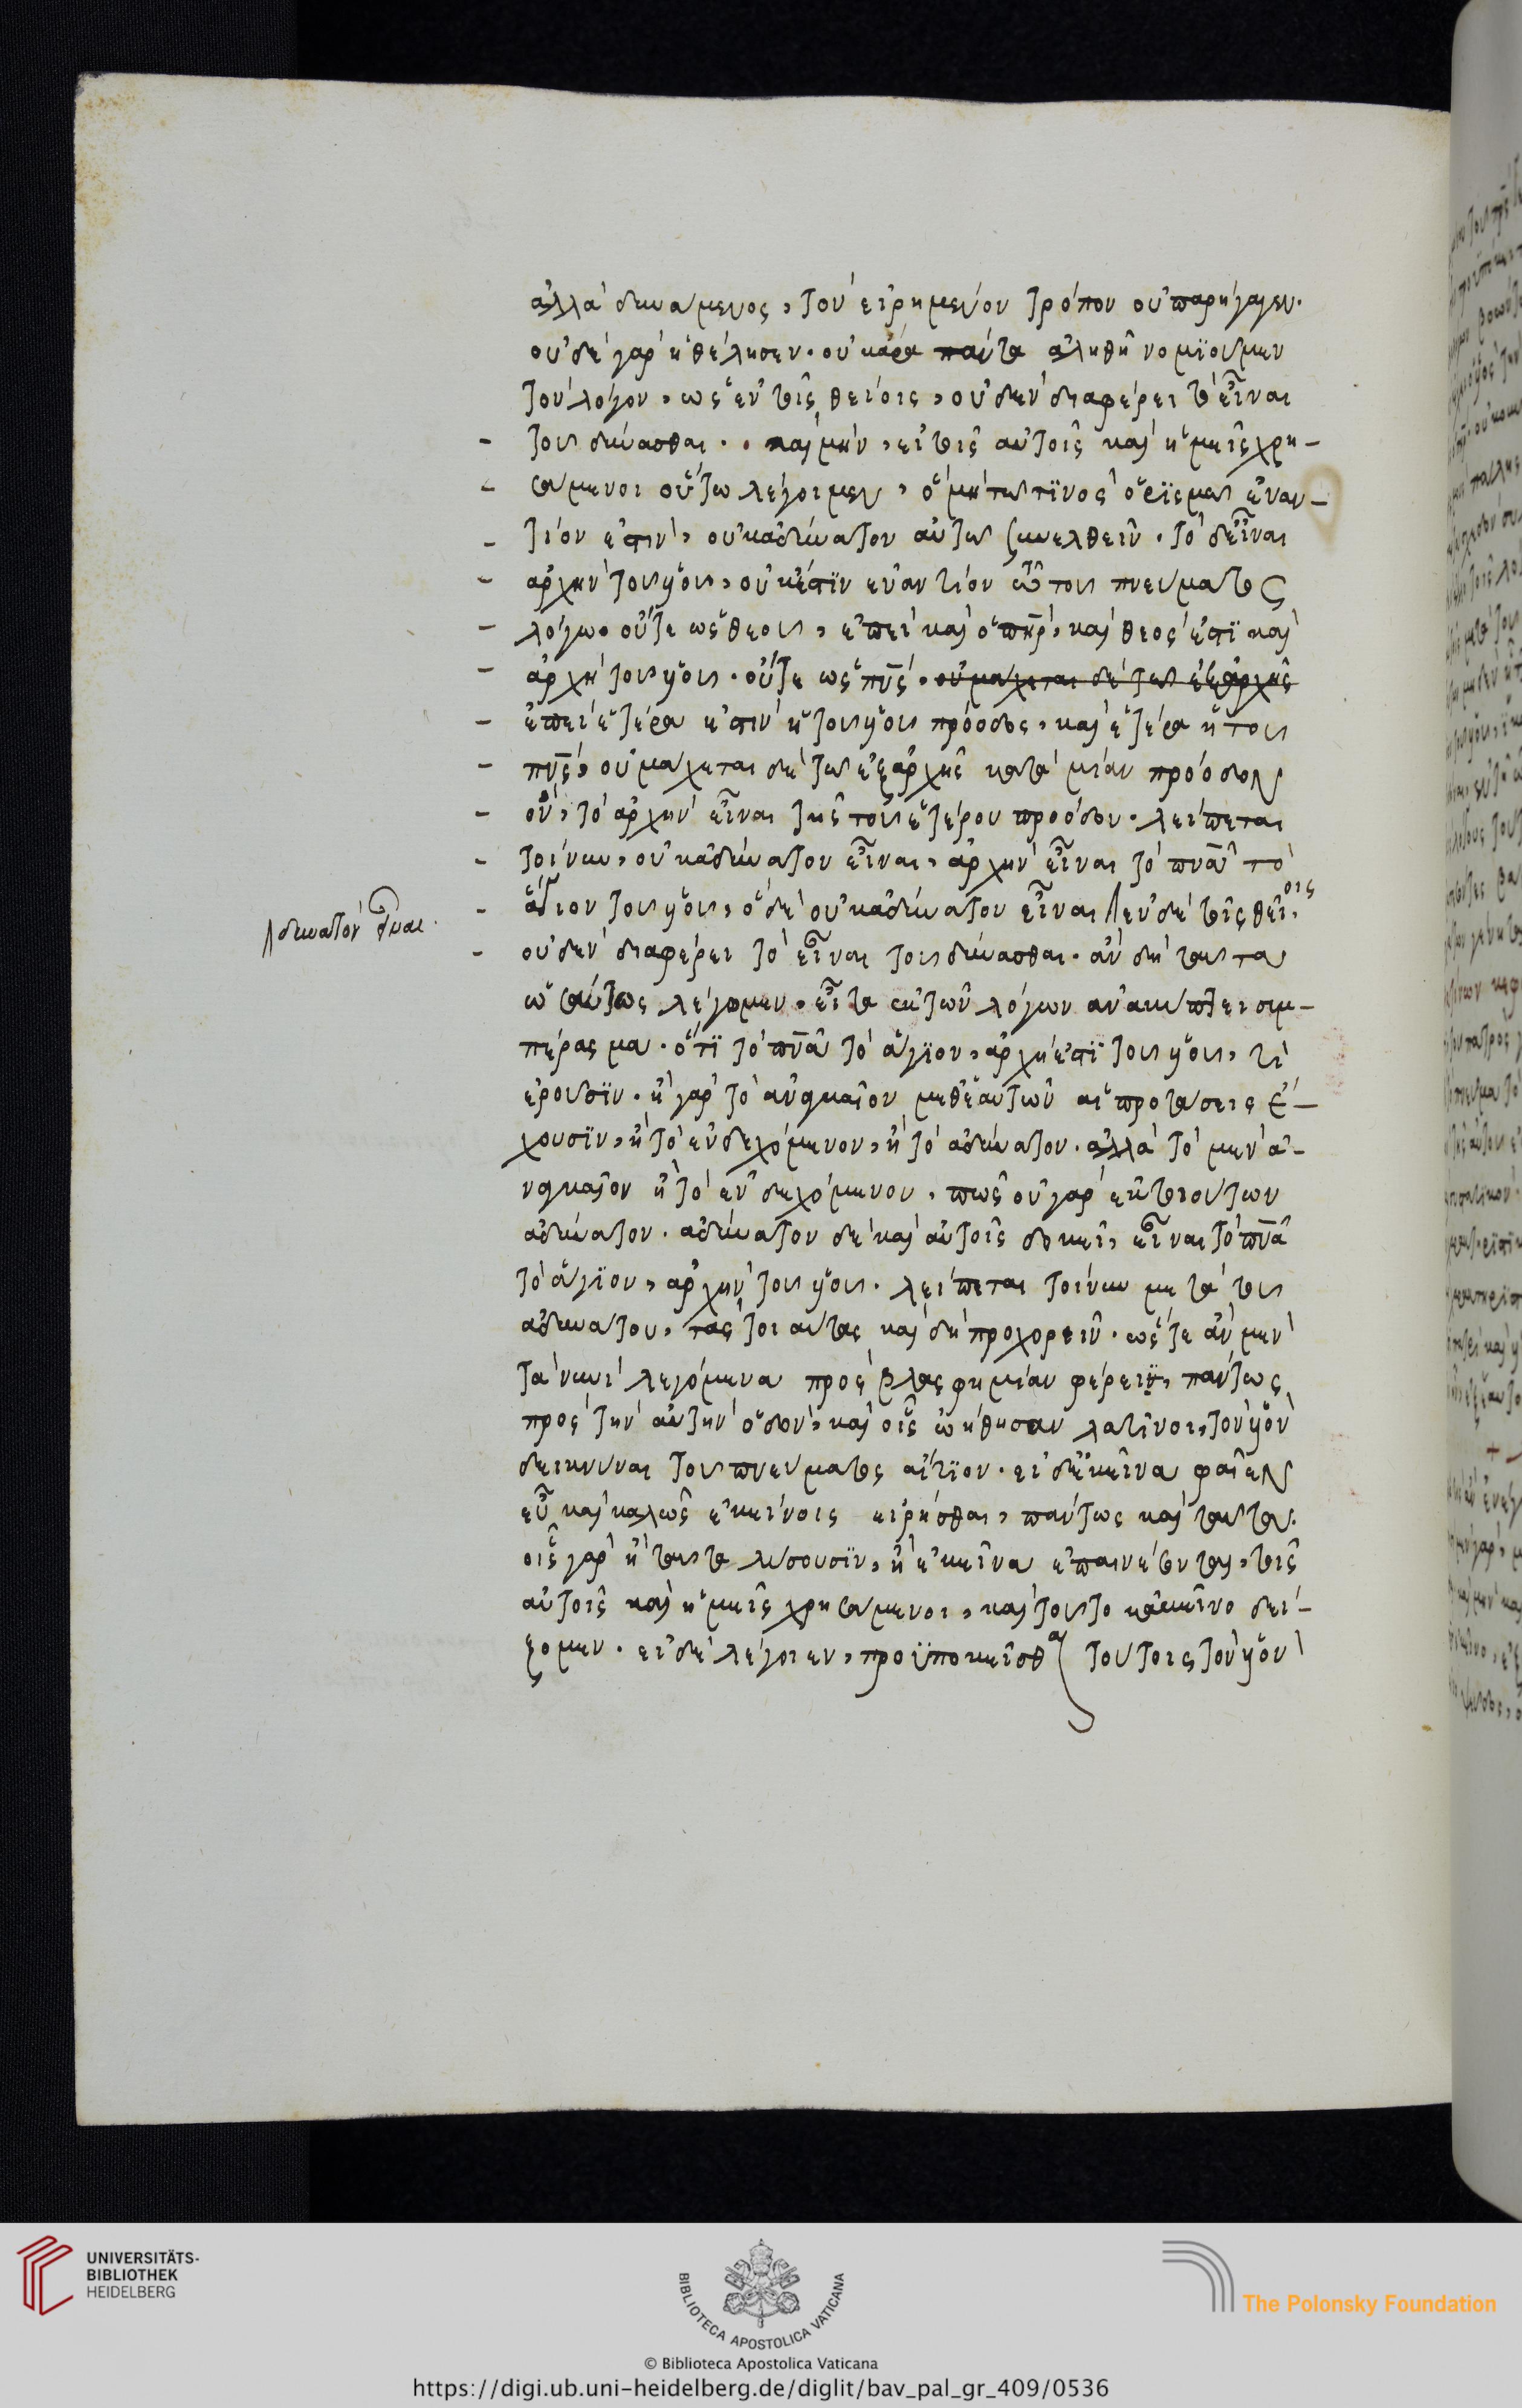 ἀλλὰ δυνάμενος, τὸν εἰρημένον τρόπον οὐ παρήγαγεν.
οὐδὲ γὰρ ἠθέλησεν. οὐκ ἄρα πάντα ἀληθῆ νομιοῦμεν
τὸν λόγον, ὡς ἐν τοῖς θείοις, οὐδὲν διαφέρει τὸ εἶναι
τοῦ δύνασθαι. καὶ μὴν, εἰ τοῖς αὐτοῖς καὶ ἡμεῖς χρη-
σάμενοι οὕτω λέγοιμεν, ὃ μή του τινὸς ὁρισμῶ ἐναν-
τίον ἐστὶν, οὐκ ἀδύνατον αὐτῶ συνελθεῖν. τὸ δὲ εἶναι
ἀρχὴν τοῦ υἱοῦ, οὐκ ἔστιν ἐναντίον τῶ τοῦ πνεύματος
λόγω. οὔτε ὡς θεοῦ, ἐπεὶ καὶ ὁ πηρ, καὶ θεός ἐστι καὶ
ἀρχὴ τοῦ υἱοῦ. οὔτε ὡς πνς. οὐ μάχεται δὲ τῶ ἐξ ἀρχῆς
ἐπεὶ ἑτέρα ἐστὶν ἡ τοῦ υἱοῦ πρόοδος, καὶ ἑτέρα ἡ τοῦ
πνς, οὐ μάχεται δὲ τῶ ἐξ ἀρχῆς κατὰ μίαν πρόοδον
ὂν, τὸ ἀρχὴν εἶναι τῆς τοῦ ἑτέρου προόδου. λείπεται
τοίνυν, οὐκ ἀδύνατον εἶναι, ἀρχὴν εἶναι τὸ πνα τὸ
ἅγιον τοῦ υἱοῦ, ὃ δὲ οὐκ ἀδύνατον εἶναι ἐν δὲ τοῖς θείοις
ἀδύνατον εἶναι.
οὐδὲν διαφέρει τὸ εἶναι τοῦ δύνασθαι. ἂν δὴ ταῦτα
ὡσαύτως λέγωμεν, εἶτα ἐκ τῶν λόγων ἀνακύπτει συμ-
πέρασμα. ὅτι τὸ πνα τὸ ἅγιον, ἀρχή ἐστι τοῦ υἱοῦ, τί
ἐροῦσιν. ἢ γὰρ τὸ ἀναγκαῖον μεθ' ἑαυτῶν αἱ προτάσεις ἔ-
χουσιν, ἢ τὸ ἐνδεχόμενον, ἢ τὸ ἀδύνατον. ἀλλὰ τὸ μὲν ἀ-
ναγκαῖον ἢ τὸ ἐνδεχόμενον, πῶς οὐ γὰρ ἐκ τοιούτων
ἀδύνατον. ἀδύνατον δὲ καὶ αὐτοῖς δοκεῖ, εἶναι τὸ πνα
τὸ ἅγιον, ἀρχὴν τοῦ υἱοῦ. λείπεται τοίνυν μετὰ τοῦ
ἀδυνάτου, τὰς τοιαύτας καὶ δὴ προχορεῖν. ὥστε ἂν μὲν
τὰ νυνὶ λεγόμενα πρὸς βλασφημίαν φέρειν, πάντως
πρὸς τὴν αὐτὴν ὁδὸν, καὶ οἷς ὠήθησαν λατῖνοι, τὸν υἱὸν
δεικνύναι τοῦ πνεύματος αἴτιον. εἰ δὲ ἐκεῖνα φαῖεν
εὖ καὶ καλῶς ἐκείνοις εἰρῆσθαι, πάντως καὶ ταῦτα.
οἷς γὰρ ἢ ταῦτα λύσουσιν, ἢ ἐκεῖνα ἐπαινέσονται, τοῖς
αὐτοῖς καὶ ἡμεῖς χρησάμενοι, καὶ τοῦτο κἀκεῖνο δεί-
ξομεν. εἰ δὲ λέγοιεν, προϋποκεῖσθαι τούτοις τὸν υἱὸν
UNIVERSITÄTS-
BIBLIOTHEK
HEIDELBERG
BIBLIOTECA APOSTOLICA VATICANA
The Polonsky Foundation
© Biblioteca Apostolica Vaticana
https://digi.ub.uni-heidelberg.de/diglit/bav_pal_gr_409/0536